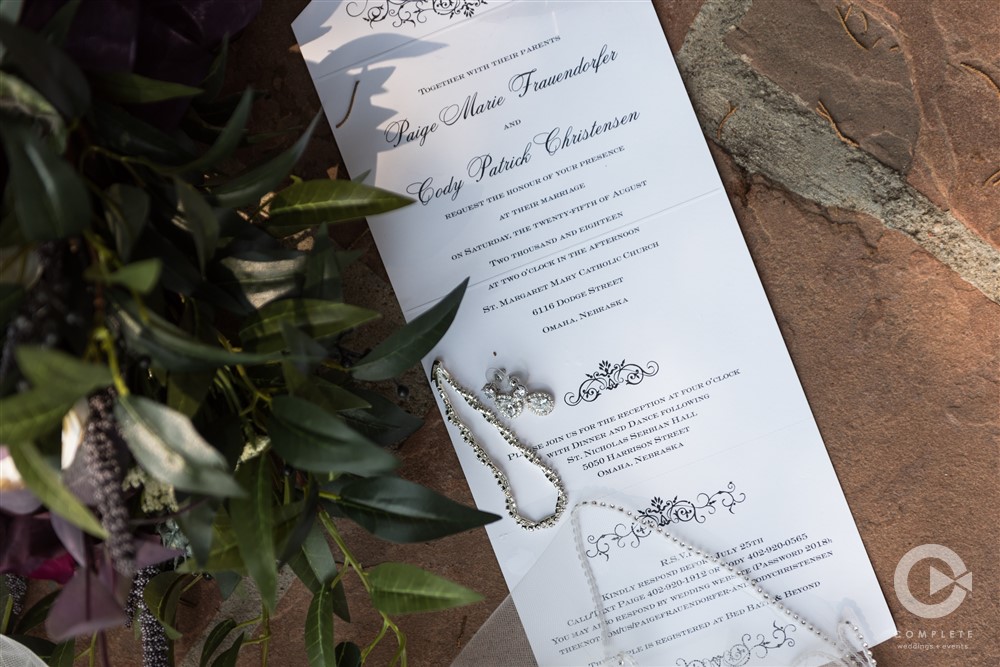 Together with their parents
Paige Marie Frauendorfer
and
Cody Patrick Christensen
request the honour of your presence
at their marriage
on Saturday, the twenty-fifth of August
Two thousand and eighteen
at two o'clock in the afternoon
St. Margaret Mary Catholic Church
6116 Dodge Street
Omaha, Nebraska
Please join us for the reception at four o'clock
with Dinner and Dance following
St. Nicholas Serbian Hall
5050 Harrison Street
Omaha, Nebraska
R.S.V.P.
Kindly respond before July 25th
Call/Text Paige 402-920-1912 or Cody 402-920-0565
You may also respond by website (Password 2018):
is registered at Bed Bath & Beyond
COMPLETE
weddings + events